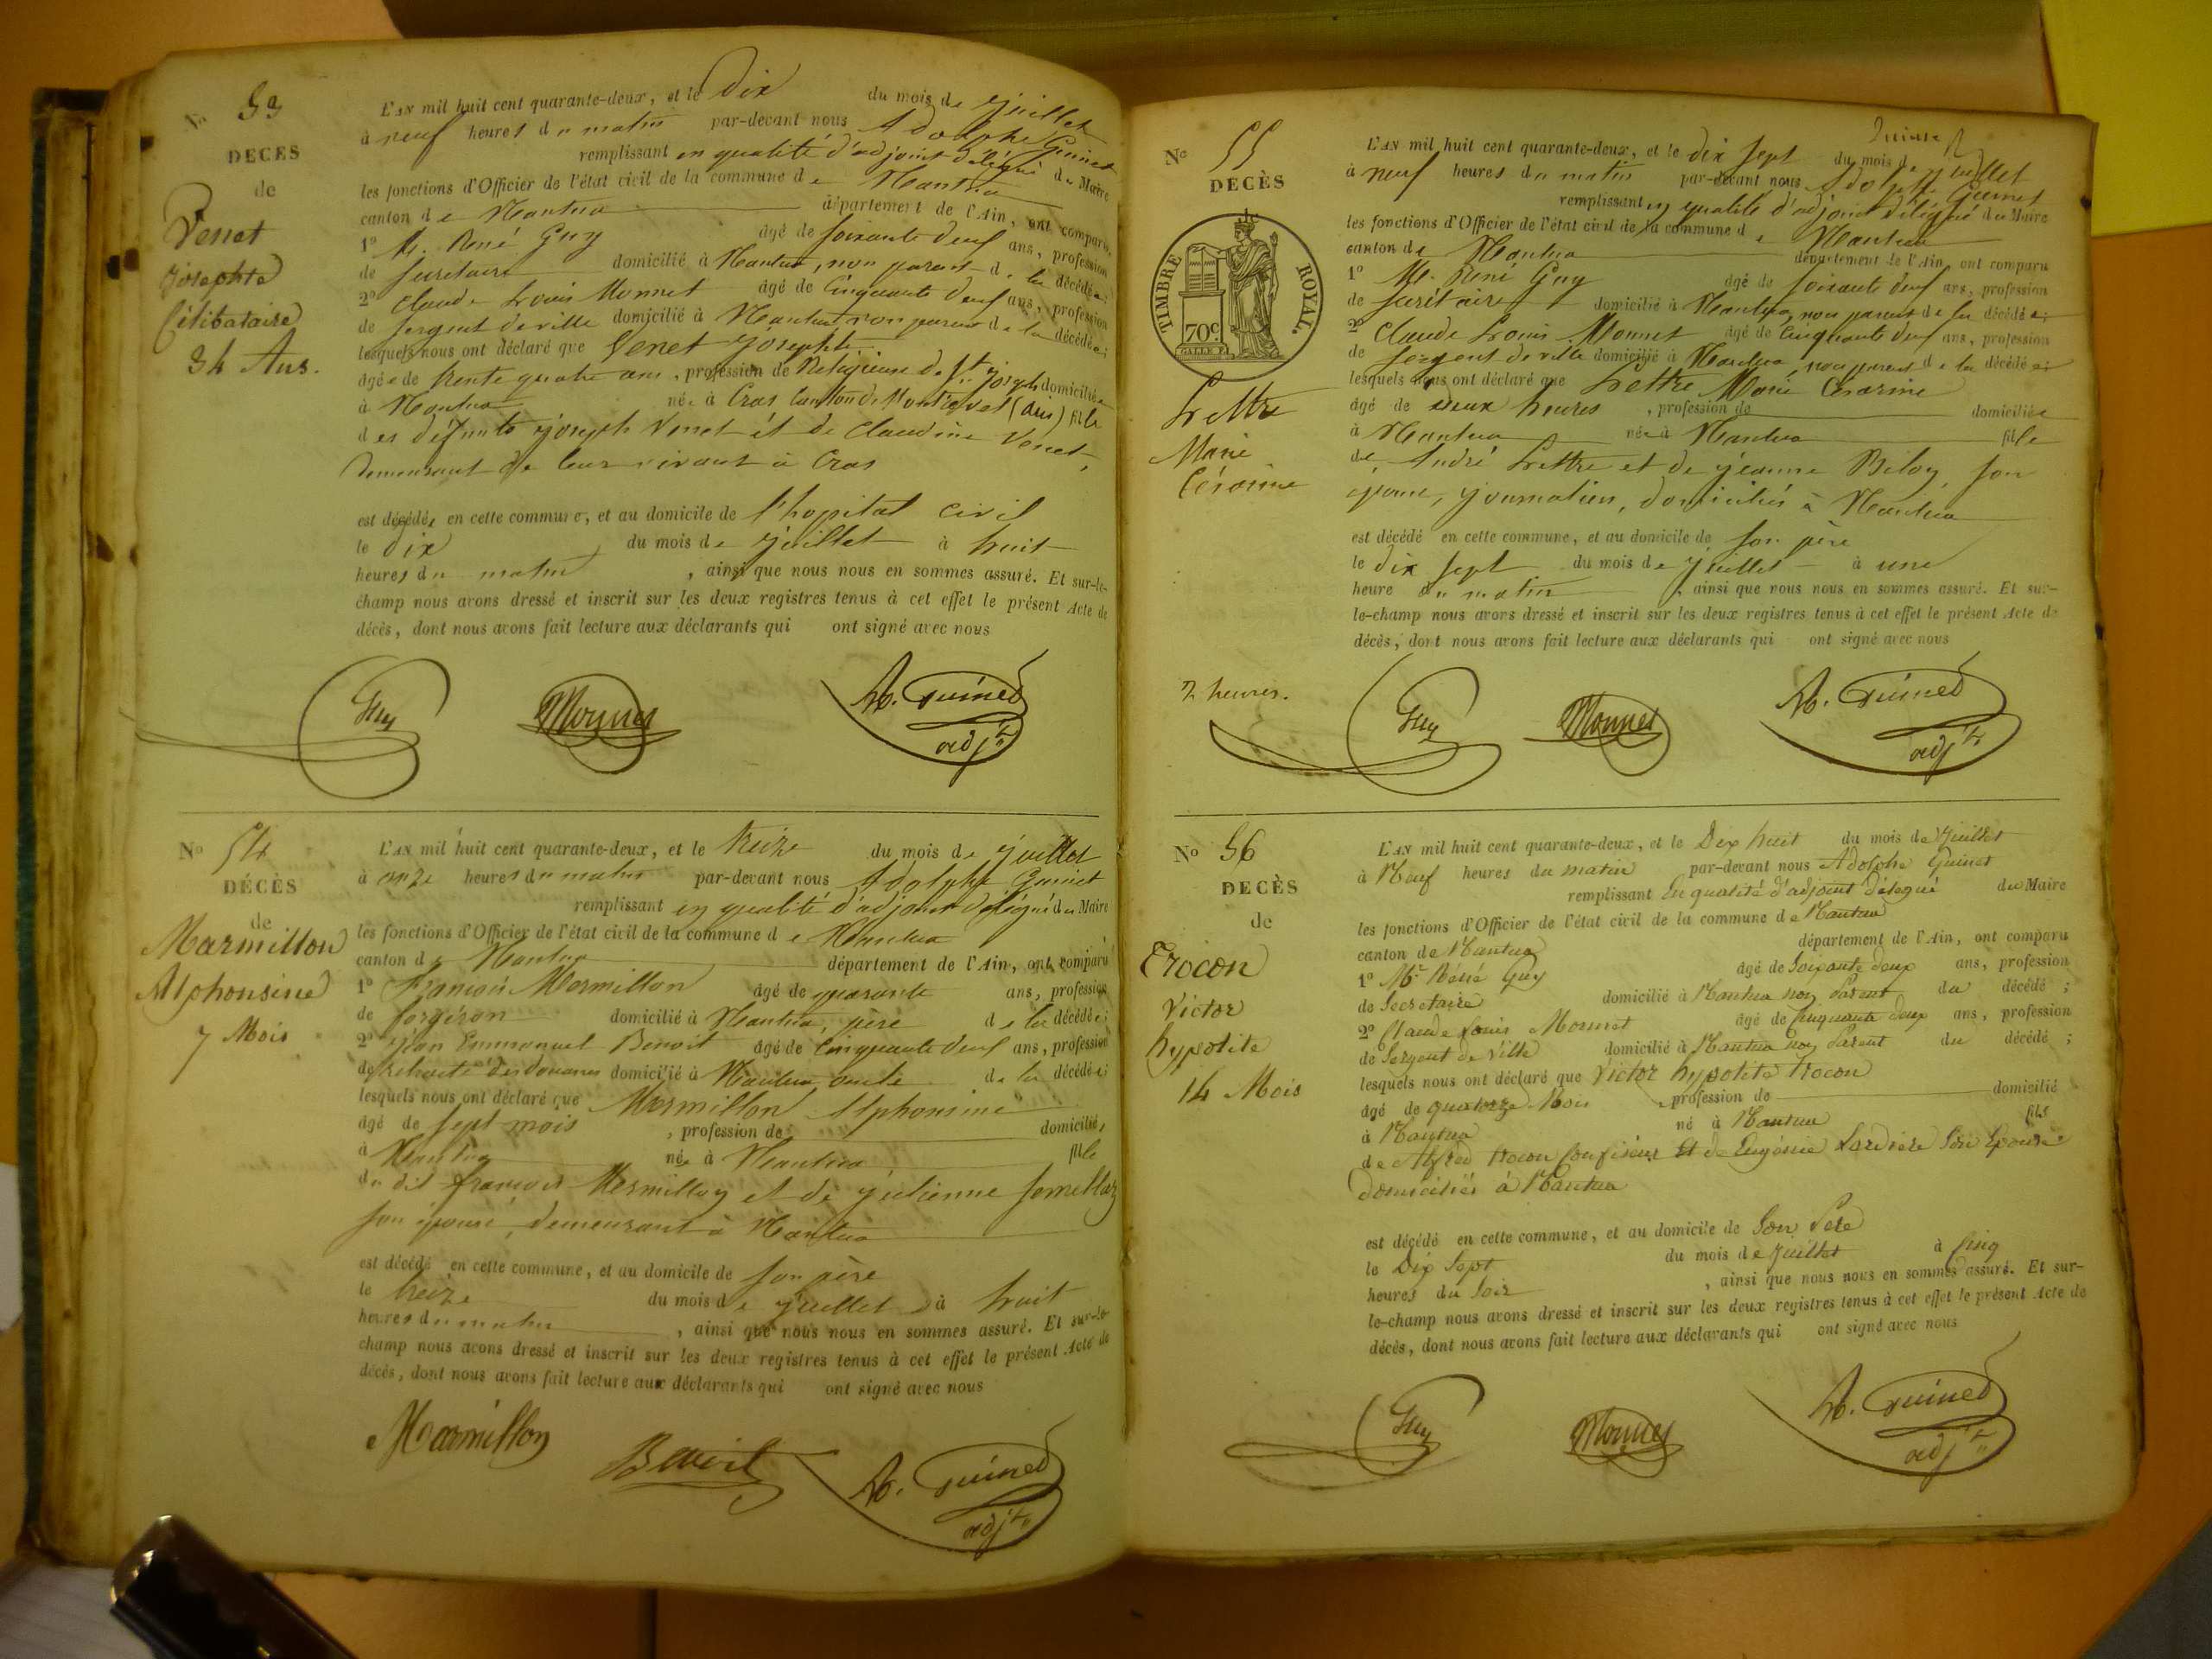 No 53
DÉCÈS
de
Venet
Josephte
Célibataire
34 Ans.
L'AN mil huit cent quarante-deux, et le Dix du mois de Juillet
à neuf heures du matin par-devant nous Adolphe Guinet
remplissant en qualité d'adjoint délégué du Maire
les fonctions d'Officier de l'état civil de la commune de Nantua
canton de Nantua département de l'Ain, ont comparu
1° M. René Guy âgé de soixante deux ans, profession
de secrétaire domicilié à Nantua, non parent de la décédée;
2° Claude Louis Monnet âgé de cinquante deux ans, profession
de sergent de ville domicilié à Nantua non parent de la décédée;
lesquels nous ont déclaré que Venet Josephte
âgée de trente quatre ans, profession de Religieuse de St Joseph domiciliée
à Nantua née à Cras Canton de Montrevel (ain) fille
des défunts Joseph Venet et de Claudine Venet,
demeurant de leur vivant à Cras
est décédée en cette commune, et au domicile de l'hopital civil
le dix du mois de Juillet à huit
heures du matin, ainsi que nous nous en sommes assuré. Et sur-le-
champ nous avons dressé et inscrit sur les deux registres tenus à cet effet le présent Acte de
décès, dont nous avons fait lecture aux déclarants qui ont signé avec nous
Guy Monnet A. Guinet
adjt
No 54
DÉCÈS
de
Marmillon
Alphonsine
7 Mois
L'AN mil huit cent quarante-deux, et le treize du mois de Juillet
à onze heures du matin par-devant nous Adolphe Guinet
remplissant en qualité d'adjoint délégué du Maire
les fonctions d'Officier de l'état civil de la commune de Nantua
canton de Nantua département de l'Ain, ont comparu
1° François Marmillon âgé de quarante ans, profession
de forgeron domicilié à Nantua, père de la décédée;
2° Jean Emmanuel Benoit âgé de cinquante deux ans, profession
de retraité des douanes domicilié à Nantua, oncle de la décédée;
lesquels nous ont déclaré que Marmillon Alphonsine
âgé de sept mois, profession de domiciliée
à Nantua née à Nantua fille
du dit françois Marmillon et de Julienne
son épouse, demeurant à Nantua
est décédé en cette commune, et au domicile de son père
le treize du mois de Juillet à huit
heures du matin, ainsi que nous nous en sommes assuré. Et sur-le-
champ nous avons dressé et inscrit sur les deux registres tenus à cet effet le présent Acte de
décès, dont nous avons fait lecture aux déclarants qui ont signé avec nous
Marmillon Benoit A. Guinet
adjt
No 55
DÉCÈS
TIMBRE ROYAL.
70 c.
Lettre
Marie
Césarine
2 heures.
L'AN mil huit cent quarante-deux, et le dix sept du mois de Juillet
à neuf heures du matin par-devant nous Adolphe Guinet
remplissant en qualité d'adjoint délégué du Maire
les fonctions d'Officier de l'état civil de la commune de Nantua
canton de Nantua département de l'Ain, ont comparu
1° M. René Guy âgé de soixante deux ans, profession
de secrétaire domicilié à Nantua, non parent de la décédée;
2° Claude Louis Monnet âgé de cinquante deux ans, profession
de sergent de ville domicilié à Nantua, non parent de la décédée;
lesquels nous ont déclaré que Lettre Marie Césarine
âgé de deux heures, profession de domiciliée
à Nantua née à Nantua fille
de André Lettre et de Jeanne son
épouse, journaliers, domiciliés à Nantua
est décédé en cette commune, et au domicile de son père
le dix sept du mois de Juillet à une
heure du matin, ainsi que nous nous en sommes assuré. Et sur-
le-champ nous avons dressé et inscrit sur les deux registres tenus à cet effet le présent Acte de
décès, dont nous avons fait lecture aux déclarants qui ont signé avec nous
Guy Monnet A. Guinet
adjt
No 56
DÉCÈS
de
Trocon
Victor
hypolite
14 Mois
L'AN mil huit cent quarante-deux, et le Dix huit du mois de Juillet
à Neuf heures du matin par-devant nous Adolphe Guinet
remplissant En qualité d'adjoint délégué du Maire
les fonctions d'Officier de l'état civil de la commune de Nantua
canton de Nantua département de l'Ain, ont comparu
1° Mr Réné Guy âgé de Soixante deux ans, profession
de Secretaire domicilié à Nantua non Parent du décédé;
2° Claude Louis Monnet âgé de Cinquante deux ans, profession
de Sergent de Ville domicilié à Nantua non Parent du décédé;
lesquels nous ont déclaré que Victor hypolite trocon
âgé de quatorze Mois, profession de domicilié
à Nantua né à Nantua fils
de Alfred trocon Confiseur Et de Eugénie Son Epouse
Domiciliés à Nantua
est décédé en cette commune, et au domicile de Son Pere
le Dix Sept du mois de Juillet à Cinq
heures du Soir, ainsi que nous nous en sommes assuré. Et sur-
le-champ nous avons dressé et inscrit sur les deux registres tenus à cet effet le présent Acte de
décès, dont nous avons fait lecture aux déclarants qui ont signé avec nous
Guy Monnet A. Guinet
adjt